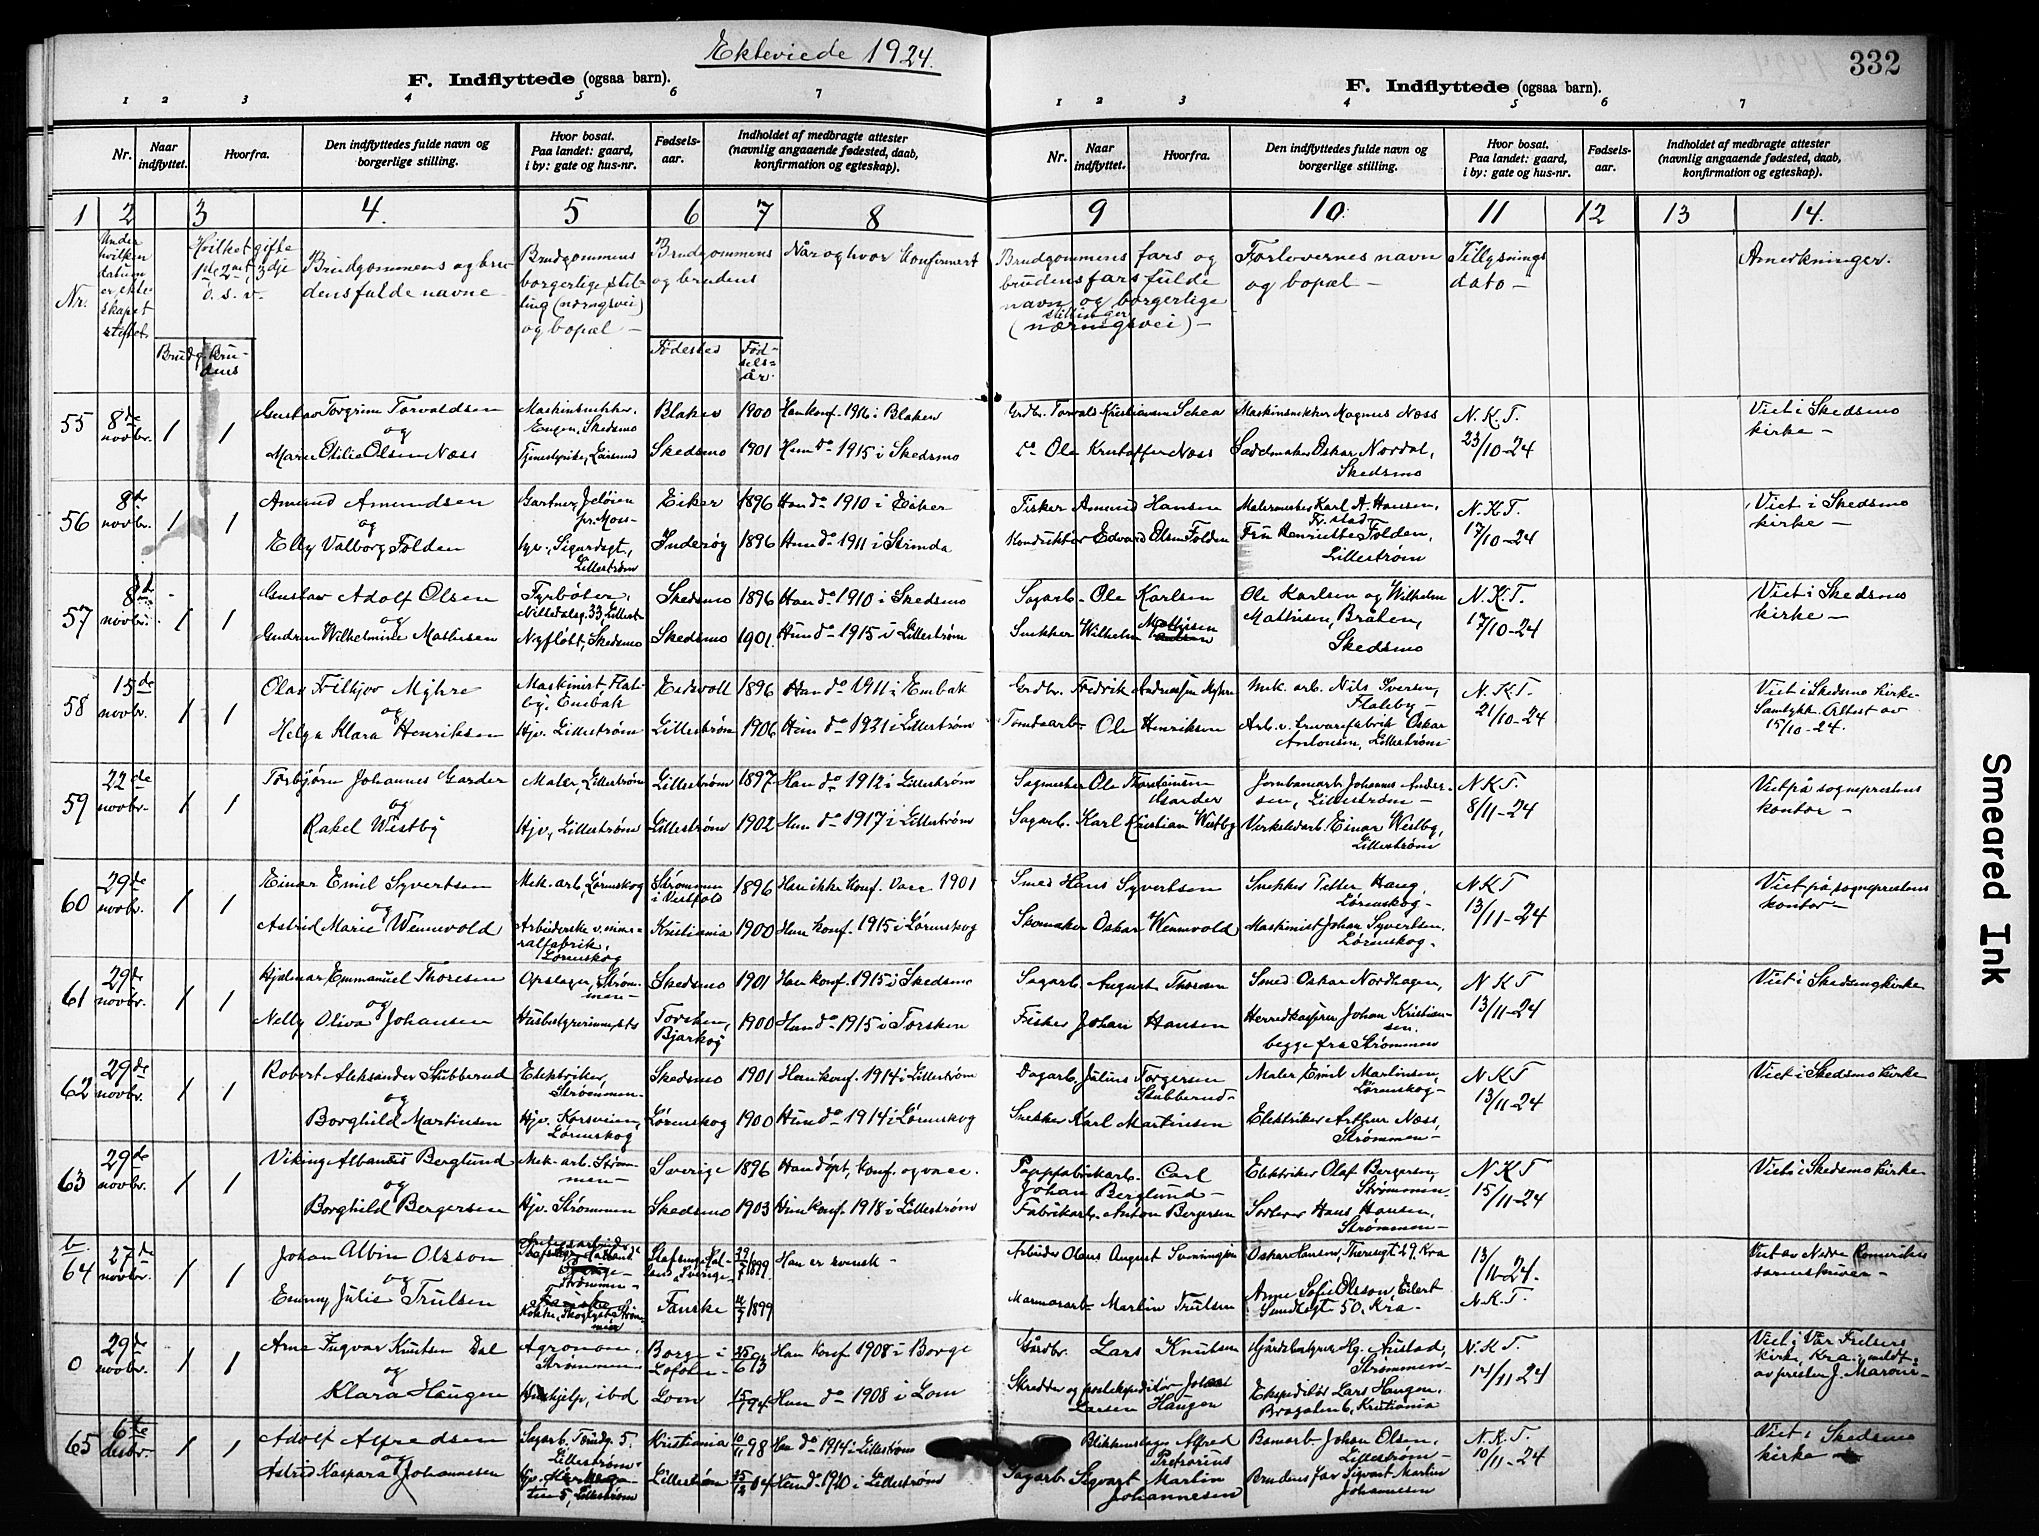 Ekteviede 1924.
332
F. Indflyttede (ogsaa barn).
1 2 3 4 5 6 7
Nr.
Naar indflyttet.
Hvorfra.
Den indflyttedes fulde navn og borgerlige stilling.
Hvor bosat. Paa landet: gaard, i by: gate og hus-nr.
Fødsels-aar.
Indholdet af medbragte attester (navnlig angaaende fødested, daab, konfirmation og egteskap).
F. Indflyttede (ogsaa barn).
1 2 3 4 5 6 7
Nr.
Naar indflyttet.
Hvorfra.
Den indflyttedes fulde navn og borgerlige stilling.
Hvor bosat. Paa landet: gaard, i by: gate og hus-nr.
Fødsels-aar.
Indholdet af medbragte attester (navnlig angaaende fødested, daab, konfirmation og egteskap).
1 2 3 4. 5 6 7 8 9 10. 11 12 13 14.
Nr.
Under hvilken datum er ekteskapet stiftet.
Hvilket gifte 1ste 2net, 3dje o. s. v.
Brudg. Brudens
Brudgommens og brudens fulde navne
Brudgommens borgerlige stilling (næringsvei) og bopæl
Brudgommens og brudens
Fødested
Fødselsår.
Når og hvor konfirmert
Brudgommens fars og brudens fars fulde navn og borgerlige stillinger (næringsvei)
Forlovernes navn og bopæl
Tillysnings dato
Anmerkninger.
55 8de novbr. 1 1 Gustav Torgrim Torvaldsen og Marie Otilie Olsen Næss
Maskinsnekker, Engen, Skedsmo
Blaker 1900 Han konf. 1916 i Blaker
Skedsmo 1901 Hun do 1915 i Skedsmo
Grdbr. Torvald Kristiansen
do Ole Kristoffer Næss
Maskinsnekker Magnus Næss
Sadelmaker Oskar Nordal, Skedsmo
N. K. T. 23/10-24
Viet i Skedsmo kirke
56 8de novbr. 1 1 Amund Amundsen og Elly Valborg Folden
Gartner, Jeløien pr. Moss
Hjv., Sigurdsgt, Lillestrøm
Eiker 1896 Han do 1910 i Eiker
Inderøy 1896 Hun do 1911 i Strinda
Fisker Amund Hansen
Konduktør Edvard Olsen Folden
Malermester Karl A. Hansen, Fr.stad
Fru Henriette Folden, Lillestrøm
N. K. T. 17/10-24
Viet i Skedsmo kirke
57 8de novbr. 1 1 Gustav Adolf Olsen og Gudrun Wilhelmine Mathisen
Fyrbøter, Nittedalsg. 33, Lillest.
Nyfløtt, Skedsmo
Skedsmo 1896 Han do 1910 i Skedsmo
Skedsmo 1901. Hun do 1915 i Lillestrøm
Sagarb. Ole Karlsen
Snekker Wilhelm Mathisen
Ole Karlsen og Wilhelm Mathisen, Bråten, Skedsmo
N. K. T. 17/10-24
Viet i Skedsmo kirke
58 15de novbr. 1 1 Olav Frithjov Myhre og Helga Klara Henriksen
Maskinist, Flateby, Enebak
Hjv. Lillestrøm
Eidsvoll 1896 Han do 1911 i Enebak
Lillestrøm 1906 Hun do 1921 i Lillestrøm
Grdbr. Fredrik Andreassen Myhre
Tomtearb. Ole Henriksen
Mek. arb. Nils Iversen, Flateby
Oskar Antonsen, Lillestrøm
N. K. T. 21/10-24
Viet i Skedsmo kirke. Samtykk. Attest av 15/10-24.
59 22de novbr. 1 1 Torbjørn Johannes Garder og Rakel Westby
Maler, Lillestrøm
Hjv., Lillestrøm
Lillestrøm 1897 Han do 1912 i Lillestrøm
Lillestrøm 1902 Hun do 1917 i Lillestrøm
Sagmester Ole Thorstensen Garder
Sagarb. Karl Kristian Westby
Jernbanearb. Johannes Andersen, Lillestrøm
Verkstedarb. Einar Westby, Lillestrøm
N. K. T. 8/11-24
Viet på sogneprestens kontor
60 29de novbr. 1 1 Einar Emil Syvertsen og Astrid Marie Wennevold
Mek. arb, Lørenskog
Arbeiderske v. mineralfabrik, Lørenskog
Strømmen i Vestfold 1896 Han ikke konf. Vacc 1901
Kristiania 1900 Hun konf. 1915 i Lørenskog
Smed Hans Syvertsen
Skomaker Oskar Wennevold
Snekker Petter Haug, Lørenskog
Maskinist Johan Syvertsen, Lørenskog
N K T 13/11-24
Viet på sogneprestens kontor
61 29de novbr. 1 1 Hjalmar Emmanuel Thoresen og Nelly Oliva Johansen
Opslager, Strømmen
Husbestyrerinne, sts
Skedsmo 1901 Han konf. 1915 i Skedsmo
Torsken, Bjarkøy 1900 Hun do 1915 i Torsken
Sagarb. August Thoresen
Fisker Johan Hansen
Smed Oskar Nordhagen, Herredkasserer Johan Kristiansen, begge fra Strømmen
N K T 13/11-24
Viet i Skedsmo kirke
62 29de novbr. 1 1 Robert Aleksander Stubberud og Borghild Martinsen
Elektriker, Strømmen
Hjv. Korsveien, Lørenskog
Skedsmo 1901 Han konf. 1914 i Lillestrøm
Lørenskog 1900 Hun do 1914 i Lørenskog
Dagarb. Julius Torgersen Stubberud
Snekker Karl Martinsen
Maler Emil Martinsen, Lørenskog
Elektriker Arthur Næss, Strømmen
N K T 13/11-24
Viet i Skedsmo kirke
63 29de novbr. 1 1 Viking Albanus Berglund og Borghild Bergersen
Mek. arb. Strømmen
Hjv. Strømmen
Sverige 1896 Han døpt, konf. og vacc.
Skedsmo 1903 Hun konf. 1918 i Lillestrøm
Pappfabrikarb. Carl Johan Berglund
Fabrikarb. Anton Bergersen
Elektriker Olaf Bergersen, Strømmen
Hans Hansen, Strømmen
N. K T 15/11-24
Viet i Skedsmo kirke
b 64 27de novbr. 1 1 Johan Albin Olsson og Emmy Julie Trulsen
Strømmen
Kokke, Skoglystå, Strømmen
29/7 1899 Han er svensk
Fauske 11/7 1899
Arbeider Olaus August Svenningsen
Marmorarb. Martin Trulsen
Oskar Hansen, Theresgt 29 Kra
Anne Sofie Olsson, Eilert Sundtsgt 50, Kra
13/11-24. N. K. T.
Viet av Nedre Romerikes sorenskriver
0 29de novbr. 1 1 Arne Ingvar Knutsen Dal og Klara Haugen
Agronom, Strømmen
Hushjelp, ibd
Borge i Lofoten 25/6 93 Han konf 1908 i Borge
Lom 15/5 94 Hun do 1908 i Lom
Gårdbr. Lars Knutsen
Skredder og postekspeditør Johan Larsen Haugen
Gårdsbestyrer Hg. Austad, Strømmen
Ekspeditør Lars Haugen, Brogaten 6, Kristiania
N. K. T. 14/11 24
Viet i Vår Frelsers kirke, Kra; meldt av prester J. Maroni
65 6te desbr. 1 1 Adolf Alfredsen og Astrid Kaspara Johannesen
Sagarb. Torvg. 5. Lillestrøm
5, Lillestrøm
Kristiania 10/11 98 Han do 1914 i Lillestrøm
Lillestrøm 25/2 04 Hun do 1920 i Lillestrøm
Blikkenslager Alfred Pretorius
Sagarb Sigvart Martin Johannesen
Bomarb. Johan Olsen, Lillestrøm
Brudens far Sigvart Martin Johannesen
N. K. T. 10/11-24
Viet i Skedsmo kirke
Smeared Ink